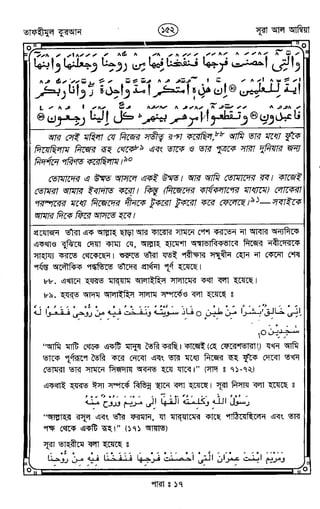 তাফহীমুল কুরআন
১৫২
সূরা আল আম্বিয়া
وَالَّتِي أَحْصَنَتْ فَرْجَهَا فَنَفَخْنَا فِيهَا مِنْ رُوحِنَا وَجَعَلْنَاهَا وَابْنَهَا
آيَةً لِلْعَالَمِينَ ۞ إِنَّ هَٰذِهِ أُمَّتُكُمْ أُمَّةً وَاحِدَةً وَأَنَا رَبُّكُمْ
فَاعْبُدُونِ ۞ وَتَقَطَّعُوا أَمْرَهُمْ بَيْنَهُمْ كُلٌّ إِلَيْنَا رَاجِعُونَ ۞
আর সেই মহিলা যে নিজের সতীত্ব রক্ষা করেছিল,৮৮ আমি তার মধ্যে ফুঁকে
দিয়েছিলাম নিজের রূহ থেকে৮৯ এবং তাকে ও তার পুত্রকে সারা দুনিয়ার জন্য
নিদর্শনে পরিণত করেছিলাম।৯০
তোমাদের এ উম্মত আসলে একই উম্মত। আর আমি তোমাদের রব। কাজেই
তোমরা আমার ইবাদাত করো। কিন্তু (নিজেদের কার্যকলাপের মাধ্যমে) লোকেরা
পরস্পরের মধ্যে নিজেদের দীনকে টুকরো টুকরো করে ফেলেছে।৯১—সবাইকে
আমার দিকে ফিরে আসতে হবে।
প্রয়োজন তাঁরা এক আল্লাহ ছাড়া আর কারোর সামনে পেশ করতেন না আবার অন্যদিকে
একথাও বুঝিয়ে দেয়া কাম্য যে, আল্লাহ হামেশা অস্বাভাবিকভাবে নিজের নবীদেরকে
সাহায্য করতে থেকেছেন। শুরুতে তাঁরা যতই পরীক্ষার সম্মুখীন হোন না কেনো শেষ
পর্যন্ত অলৌকিক পদ্ধতিতে তাঁদের প্রার্থনা পূর্ণ হয়েছে।
৮৮. এখানে হযরত মারয়াম আলাইহিস সালামের কথা বলা হয়েছে।
৮৯. হযরত আদম আলাইহিস সালাম সম্পর্কেও বলা হয়েছে ঃ
إِنِّي خَالِقٌ بَشَرًا مِنْ طِينٍ ۝ فَإِذَا سَوَّيْتُهُ وَنَفَخْتُ فِيهِ مِنْ رُوحِي فَقَعُوا لَهُ
سَاجِدِينَ ۝
"আমি মাটি থেকে একটি মানুষ তৈরি করছি। কাজেই (হে ফেরেশতারা!) যখন আমি
তাকে পূর্ণরূপে তৈরি করে নেবো এবং তার মধ্যে নিজের রূহ ফুঁকে দেবো তখন
তোমরা তার সামনে সিজদায় অবনত হয়ে যাবে।" (সাদ ঃ ৭১-৭২)
একথাই হযরত ঈসা সম্পর্কে বিভিন্ন স্থানে বলা হয়েছে। সূরা নিসায় বলা হয়েছে ঃ
رَسُولُ اللَّهِ وَكَلِمَتُهُ أَلْقَاهَا إِلَىٰ مَرْيَمَ وَرُوحٌ مِنْهُ
"আল্লাহর রসূল এবং তাঁর ফরমান, যা মারয়ামের কাছে পাঠিয়েছিলেন এবং তার
পক্ষ থেকে একটি রূহ।" (১৭১ আয়াত)
সূরা তাহরীমে বলা হয়েছে ঃ
وَمَرْيَمَ ابْنَتَ عِمْرَانَ الَّتِي أَحْصَنَتْ فَرْجَهَا فَنَفَخْنَا فِيهِ مِنْ رُوحِنَا
পারা ঃ ১৭